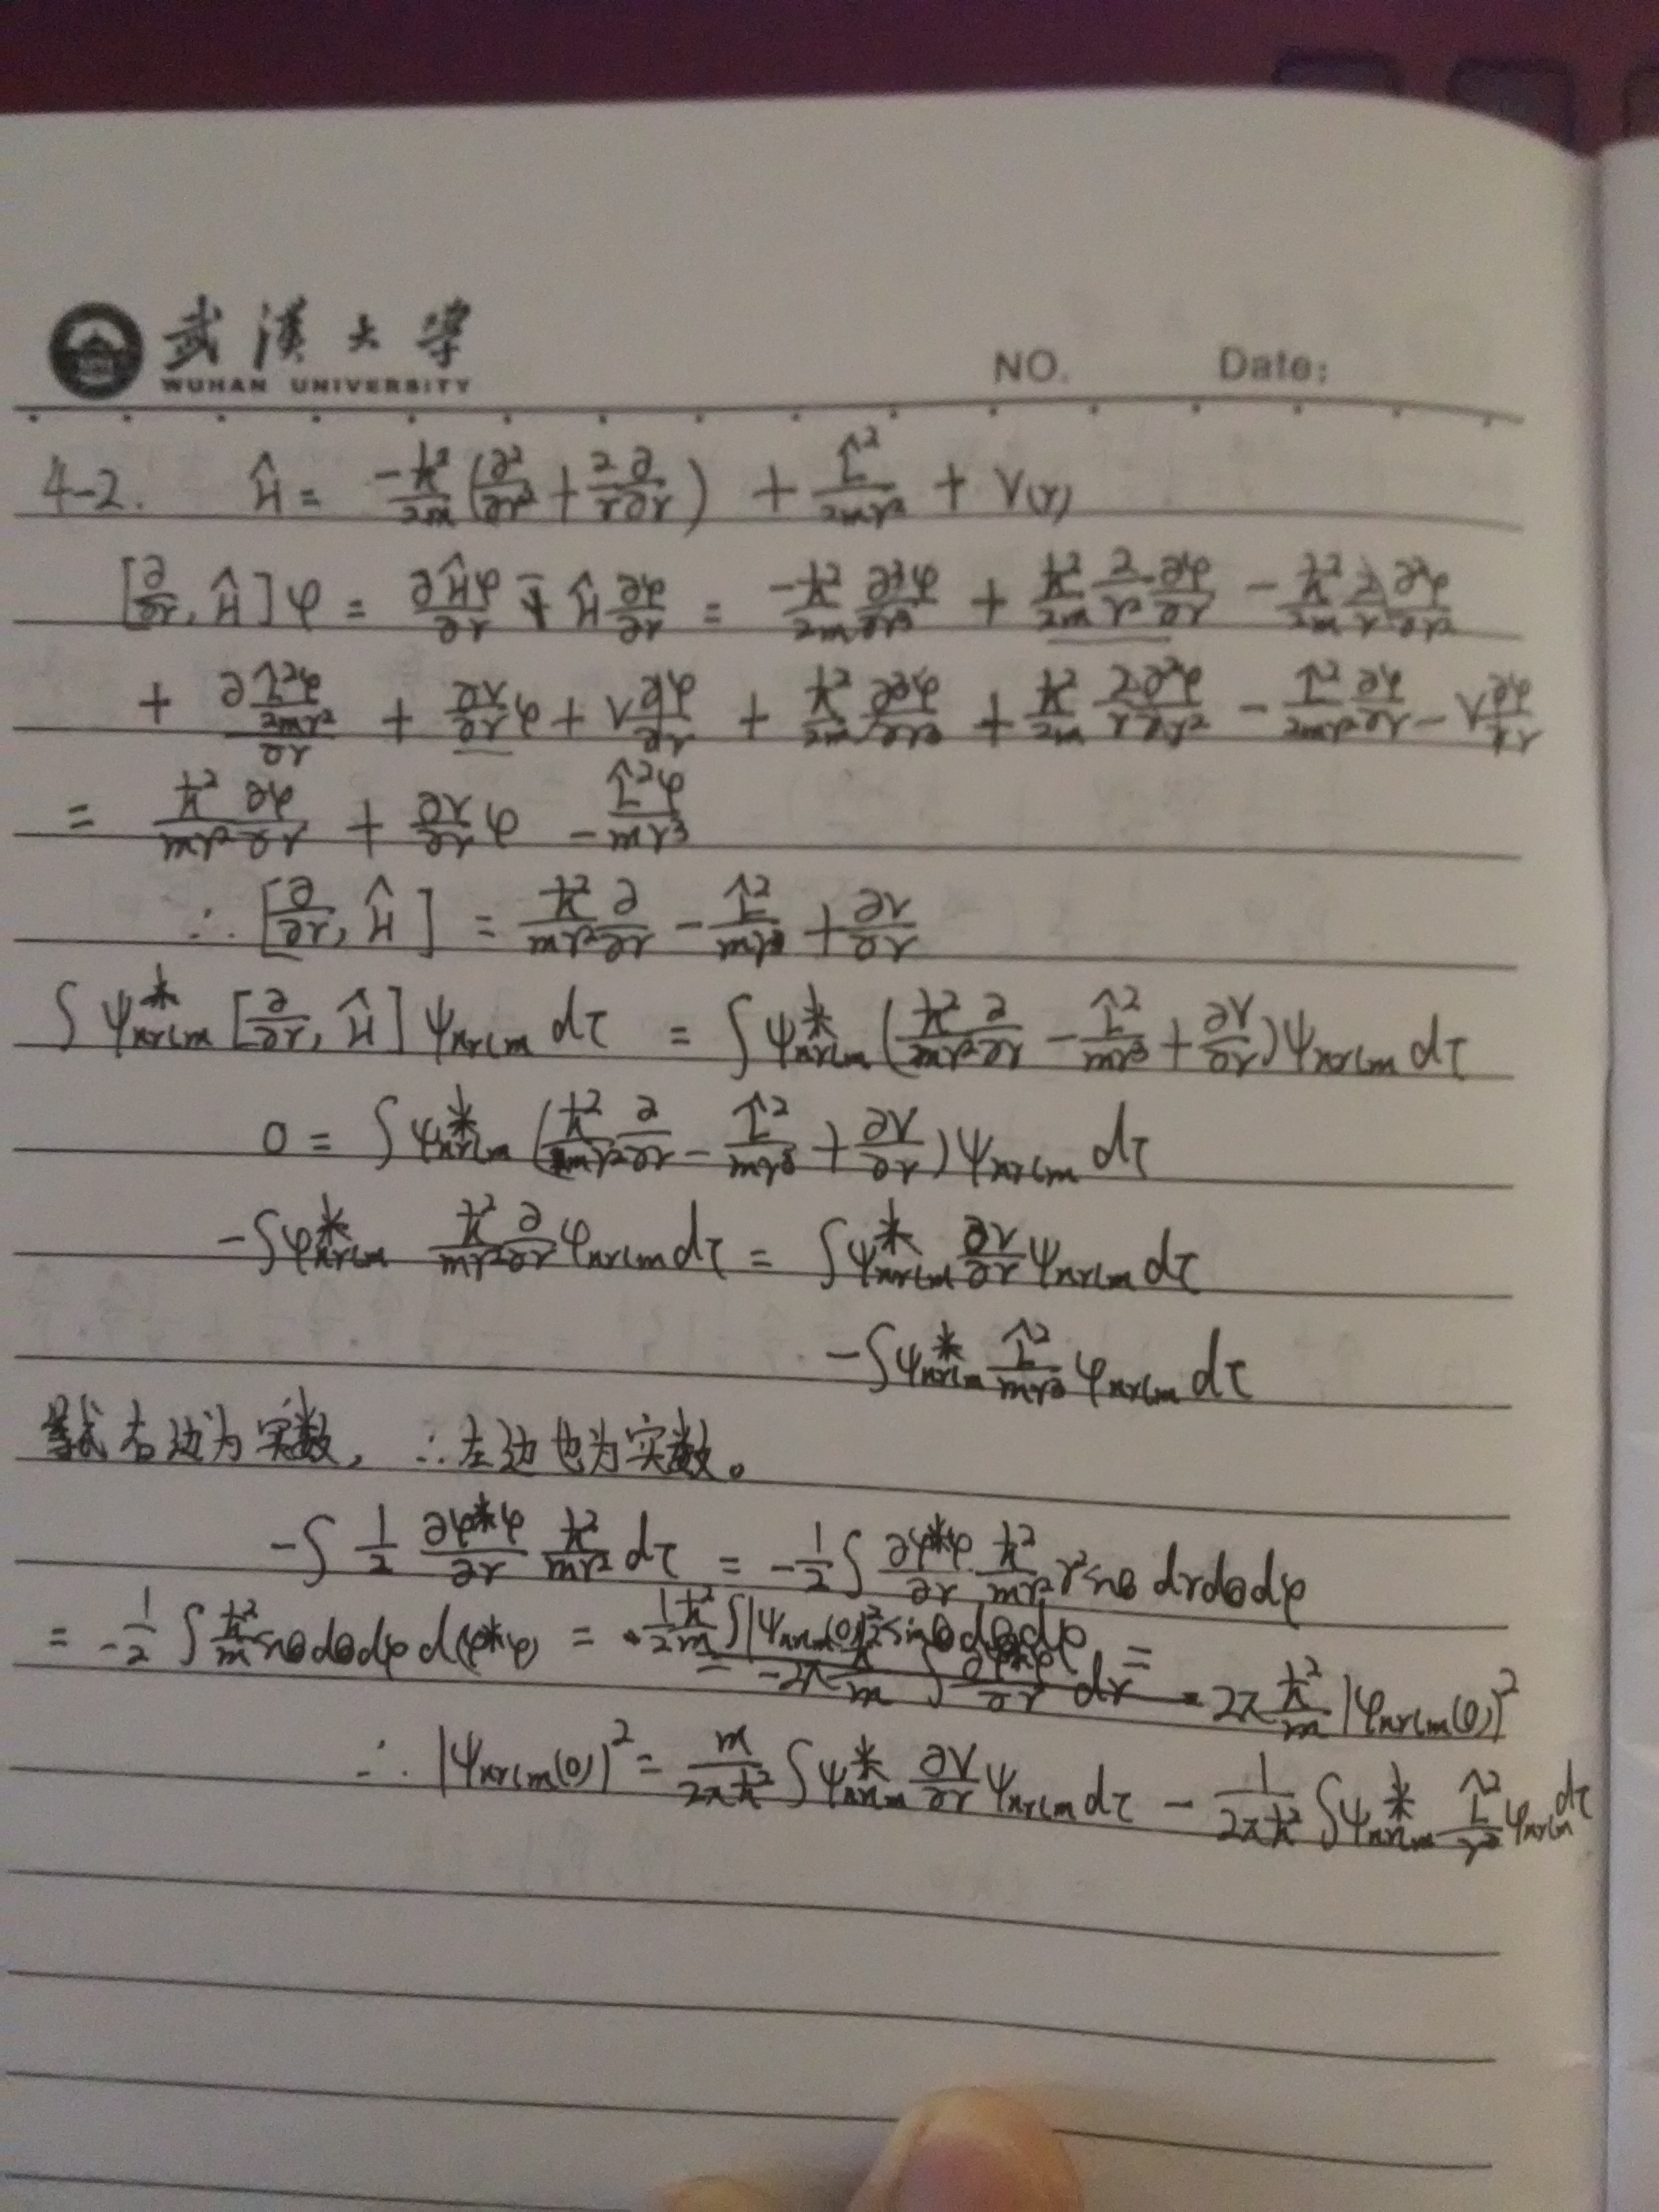 武漢大學
WUHAN UNIVERSITY
NO. Date:
4-2. Ĥ = -ħ²/2m (∂²/∂r² + 2/r ∂/∂r) + L̂²/2mr² + V(r)
[∂/∂r, Ĥ]φ = ∂Ĥφ/∂r - Ĥ ∂φ/∂r = -ħ²/2m ∂³φ/∂r³ + ħ²/2m 2/r² ∂φ/∂r - ħ²/2m 2/r ∂²φ/∂r²
+ ∂(L̂²φ/2mr²)/∂r + ∂V/∂r φ + V ∂φ/∂r + ħ²/2m ∂³φ/∂r³ + ħ²/2m 2/r ∂²φ/∂r² - L̂²/2mr² ∂φ/∂r - V ∂φ/∂r
= ħ²/mr² ∂φ/∂r + ∂V/∂r φ - L̂²φ/mr³
∴ [∂/∂r, Ĥ] = ħ²/mr² ∂/∂r - L̂²/mr³ + ∂V/∂r
∫ψ*nrlm [∂/∂r, Ĥ] ψnrlm dτ = ∫ψ*nrlm (ħ²/mr² ∂/∂r - L̂²/mr³ + ∂V/∂r) ψnrlm dτ
0 = ∫ψ*nrlm (ħ²/mr² ∂/∂r - L̂²/mr³ + ∂V/∂r) ψnrlm dτ
-∫φ*nrlm ħ²/mr² ∂/∂r φnrlm dτ = ∫ψ*nrlm ∂V/∂r ψnrlm dτ
-∫ψ*nrlm L̂²/mr³ φnrlm dτ
等式右边为实数, ∴左边也为实数。
-∫ 1/2 ∂φ*φ/∂r ħ²/mr² dτ = -1/2 ∫ ∂φ*φ/∂r ħ²/mr² r² sinθ dr dθ dφ
= -1/2 ∫ ħ²/m sinθ dθ dφ d(φ*φ) = 1/2 ħ²/m ∫|ψnrlm(0)|² sinθ dθ dφ = 2π ħ²/m |φnrlm(0)|²
∴ |ψnrlm(0)|² = m/2πħ² ∫ψ*nrlm ∂V/∂r ψnrlm dτ - 1/2πħ² ∫ψ*nrlm L̂²/r³ φnrlm dτ